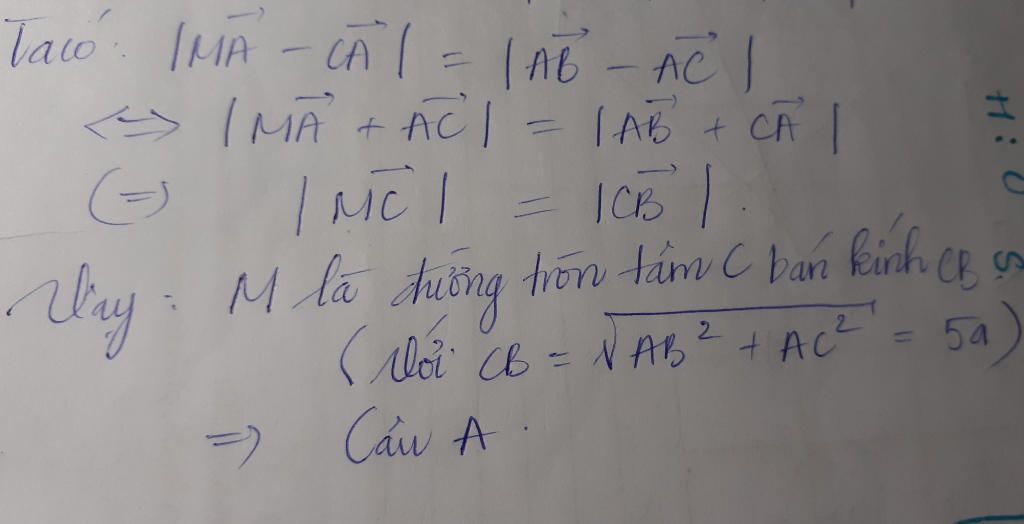 Ta có: |\overrightarrow{MA} - \overrightarrow{CA}| = |\overrightarrow{AB} - \overrightarrow{AC}|
<=> |\overrightarrow{MA} + \overrightarrow{AC}| = |\overrightarrow{AB} + \overrightarrow{CA}|
(=) |\overrightarrow{MC}| = |\overrightarrow{CB}|.
Vậy: M là đường tròn tâm C bán kính CB
(Với CB = \sqrt{AB^2 + AC^2} = 5a)
=> Câu A.